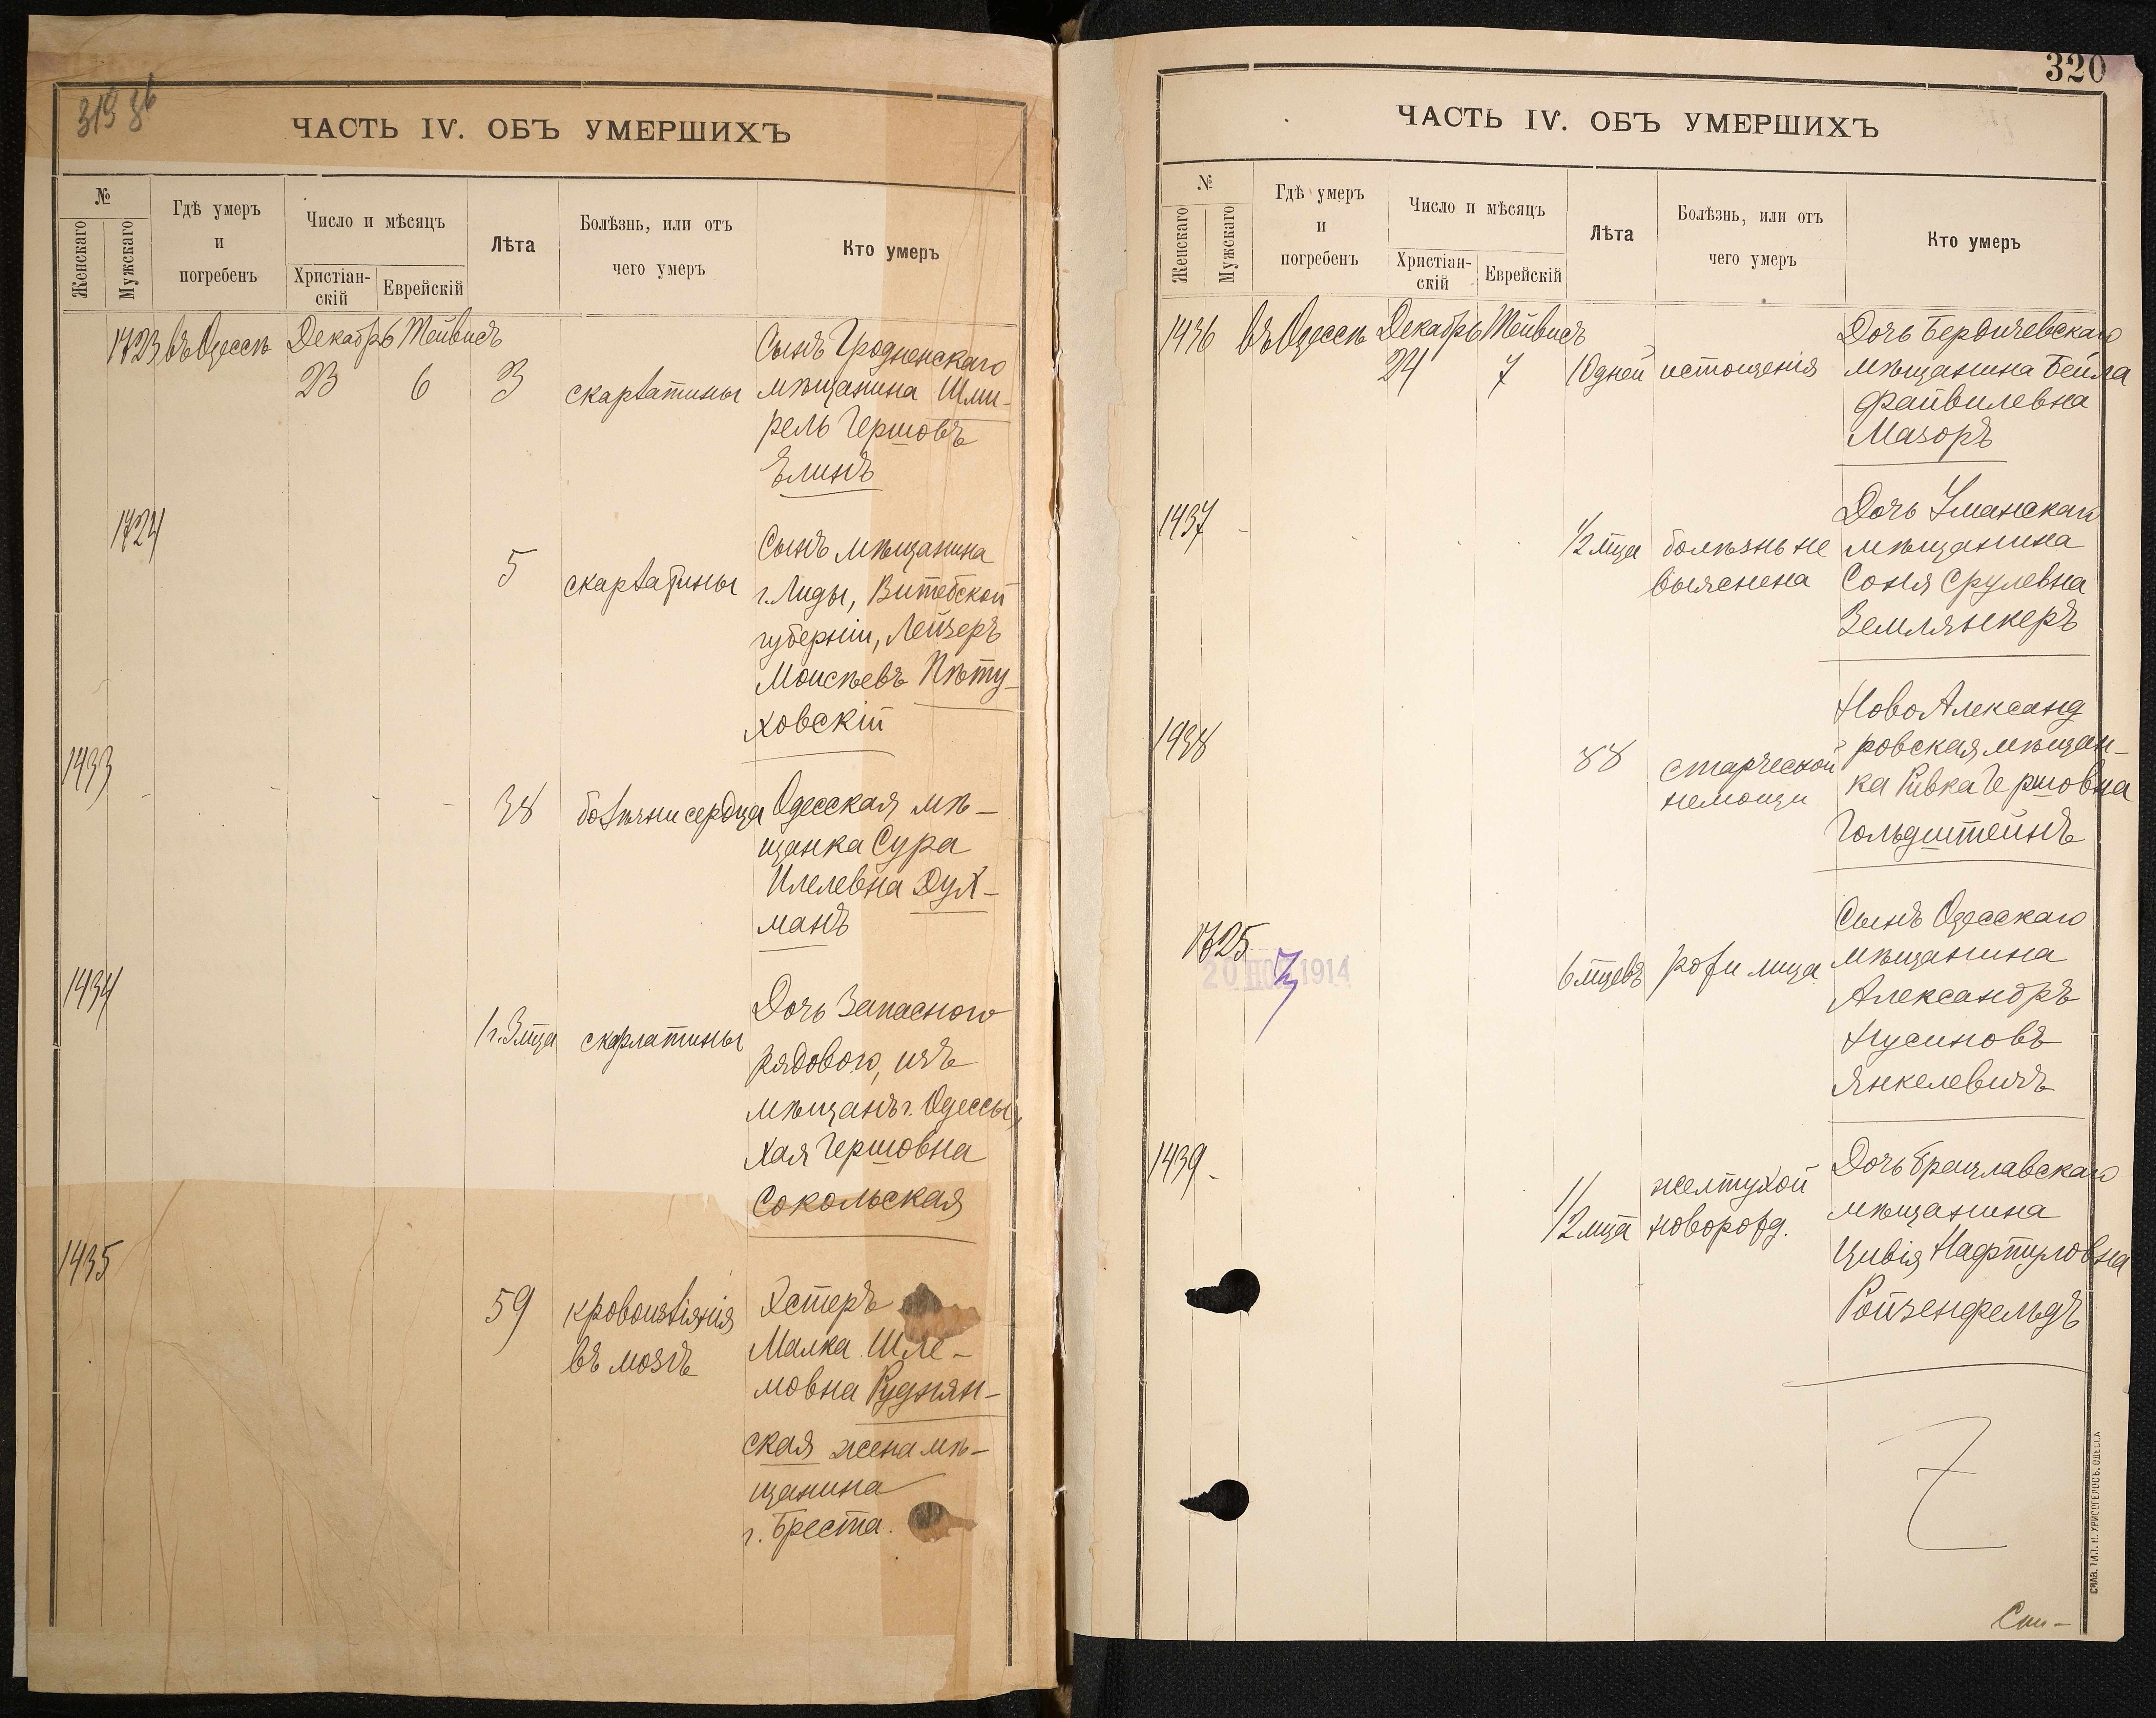 319 об
ЧАСТЬ IV. ОБЪ УМЕРШИХЪ
№
Женскаго
Мужскаго
Гдѣ умеръ
и
погребенъ
Число и мѣсяцъ
Христіан-
скій
Еврейскій
Лѣта
Болѣзнь, или отъ
чего умеръ
Кто умеръ
1723 въ Одессѣ Декабрь Тейвисъ
23 6 3 скарлатины
Сынъ Гродненскаго
мѣщанина Шми-
рель Гершовъ
Елинъ
1724
5 скарлатины
Сынъ мѣщанина
г. Лиды, Витебской
губерніи, Лейзеръ
Моисѣевъ Пѣту-
ховскій
1433
38 болѣзни сердца
Одесская мѣ-
щанка Сура
Илелевна Дух-
манъ
1434
1 г. 3 мца скарлатины
Дочь Запасного
рядового, изъ
мѣщанъ г. Одессы,
Хая Гершовна
Сокольская
1435
59 кровоизліянія
въ мозгъ
Эстеръ
Малка Шле-
мовна Руднян-
ская жена мѣ-
щанина
г. Бреста.
320
ЧАСТЬ IV. ОБЪ УМЕРШИХЪ
№
Женскаго
Мужскаго
Гдѣ умеръ
и
погребенъ
Число и мѣсяцъ
Христіан-
скій
Еврейскій
Лѣта
Болѣзнь, или отъ
чего умеръ
Кто умеръ
1436 въ Одессѣ Декабрь Тейвисъ
24 7 10 дней истощенія
Дочь Бердичевскаго
мѣщанина Бейла
Файвилевна
Мазоръ
1437
1/2 мца болѣзнь не
выяснена
Дочь Уманскаго
мѣщанина
Соня Срулевна
Землянкеръ
1438
88 старческой
немощи
НовоАлександ
ровская мѣщан-
ка Ривка Гершовна
Гольдштейнъ
1725
20 НОЯ 1914
6 мцевъ рожи лица
Сынъ Одесскаго
мѣщанина
Александръ
Нусиновъ
Янкелевичъ
1439
1/2 мца желтухой
новорожд.
Дочь Брацлавскаго
мѣщанина
Цивія Нафтуловна
Ройзенфельдъ
Спи-
СКЛ. ТИП. Н. ХРИСОГЕЛОСЪ. ОДЕССА